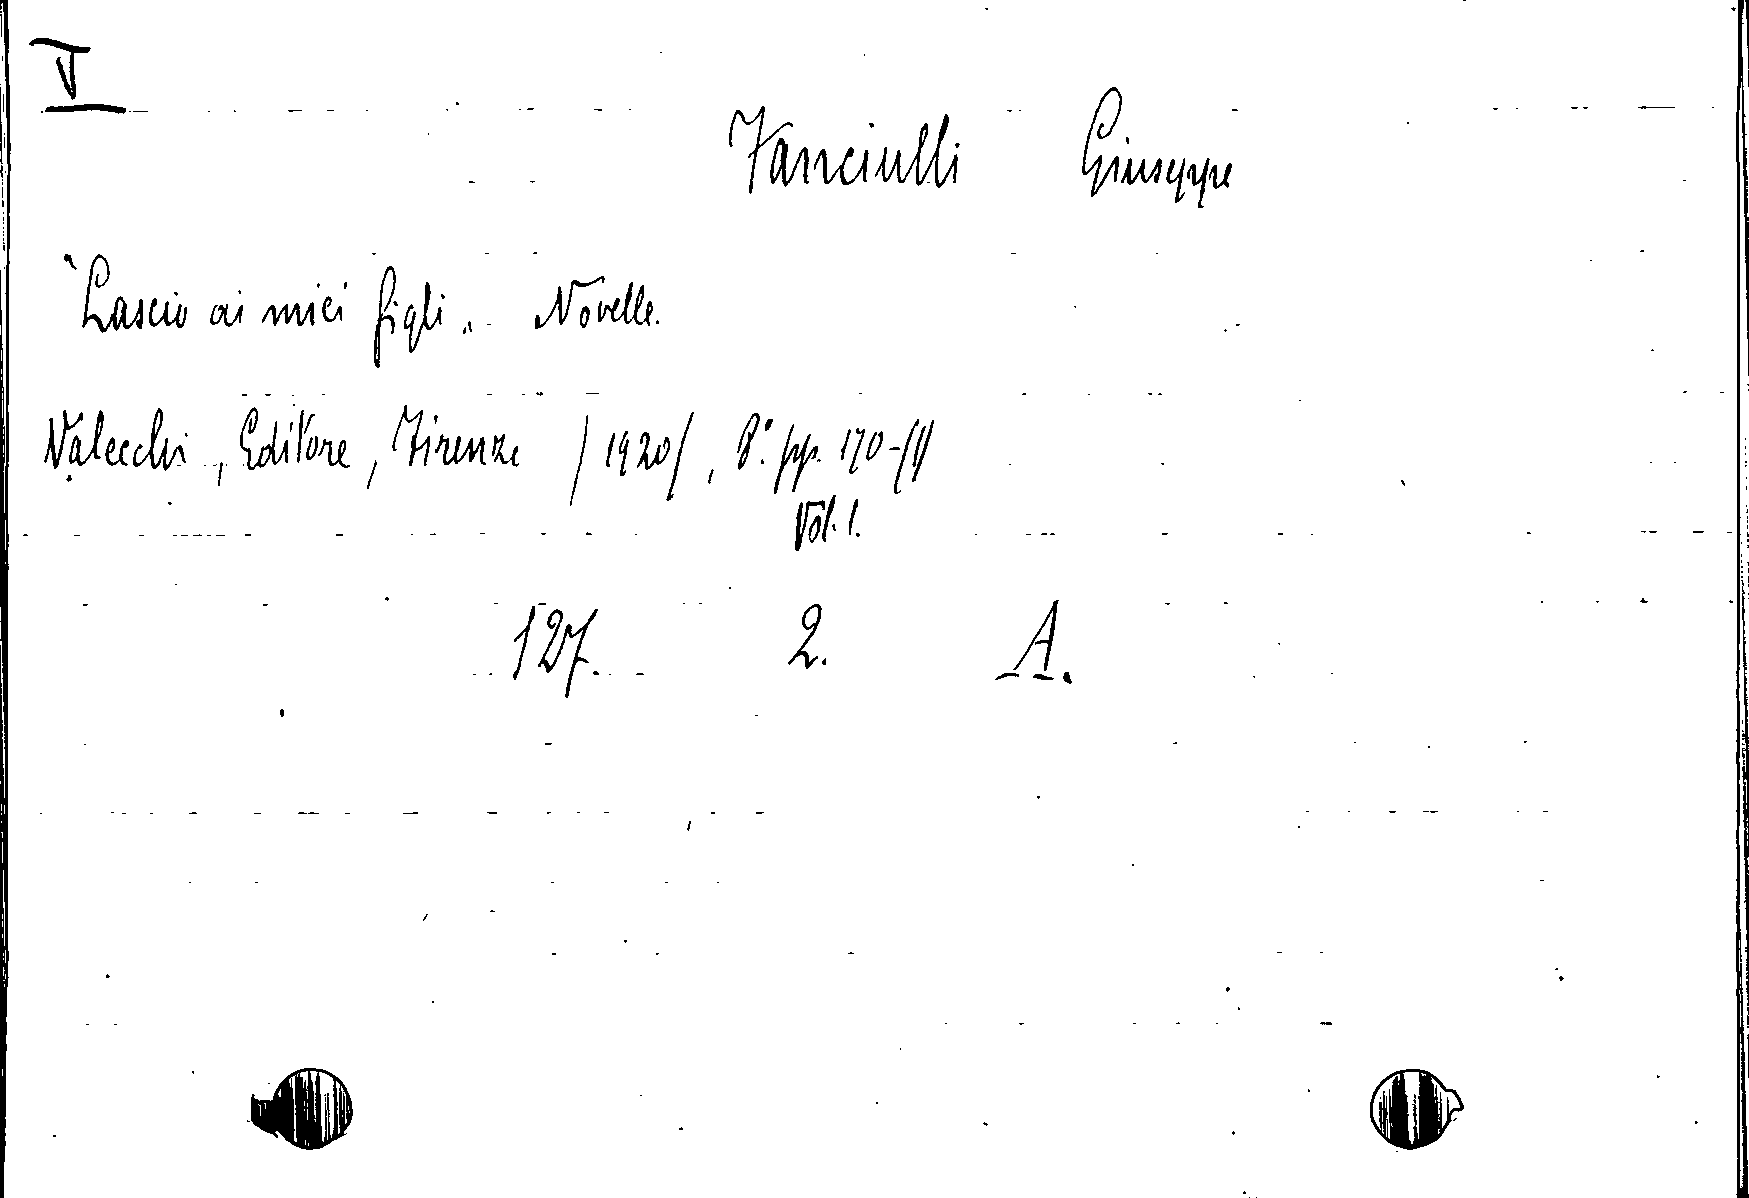 V
Fanciulli Giuseppe
"Lascio ai miei figli„ Novelle.
Valecchi, Editore, Firenze /1920/, 8°. pp. 170-
Vol. 1.
127. 2. A.